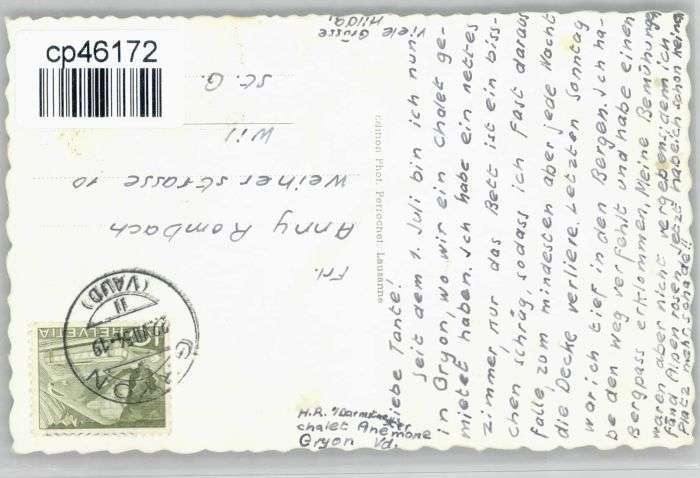 cp46172
Liebe Tante!
Seit dem 1. Juli bin ich nun
in Gryon, wo wir ein Chalet ge-
mietet haben. Ich habe ein nettes
Zimmer nur das Bett ist ein biss-
chen schräg, sodass ich fast daraus
falle, zum mindesten aber jede Nacht
die Decke verliere. Letzten Sonntag
war ich tief in den Bergen. Ich ha-
be den Weg verfehlt und habe einen
Bergpass erklommen. Meine Bemühungen
waren aber nicht vergebens, denn ich
fand Alpenrosen. Jetzt habe ich schon keinen
Platz mehr, schade!!
Viele Grüsse
Hilda.
H.R.
chalet Anémone
Gryon Vd.
Edition Phot. Perrochet Lausanne
Frl.
Anny Rombach
Weiherstrasse 10
Wil
St. G.
HELVETIA
GRYON
VII.54.-19
11
(VAUD)